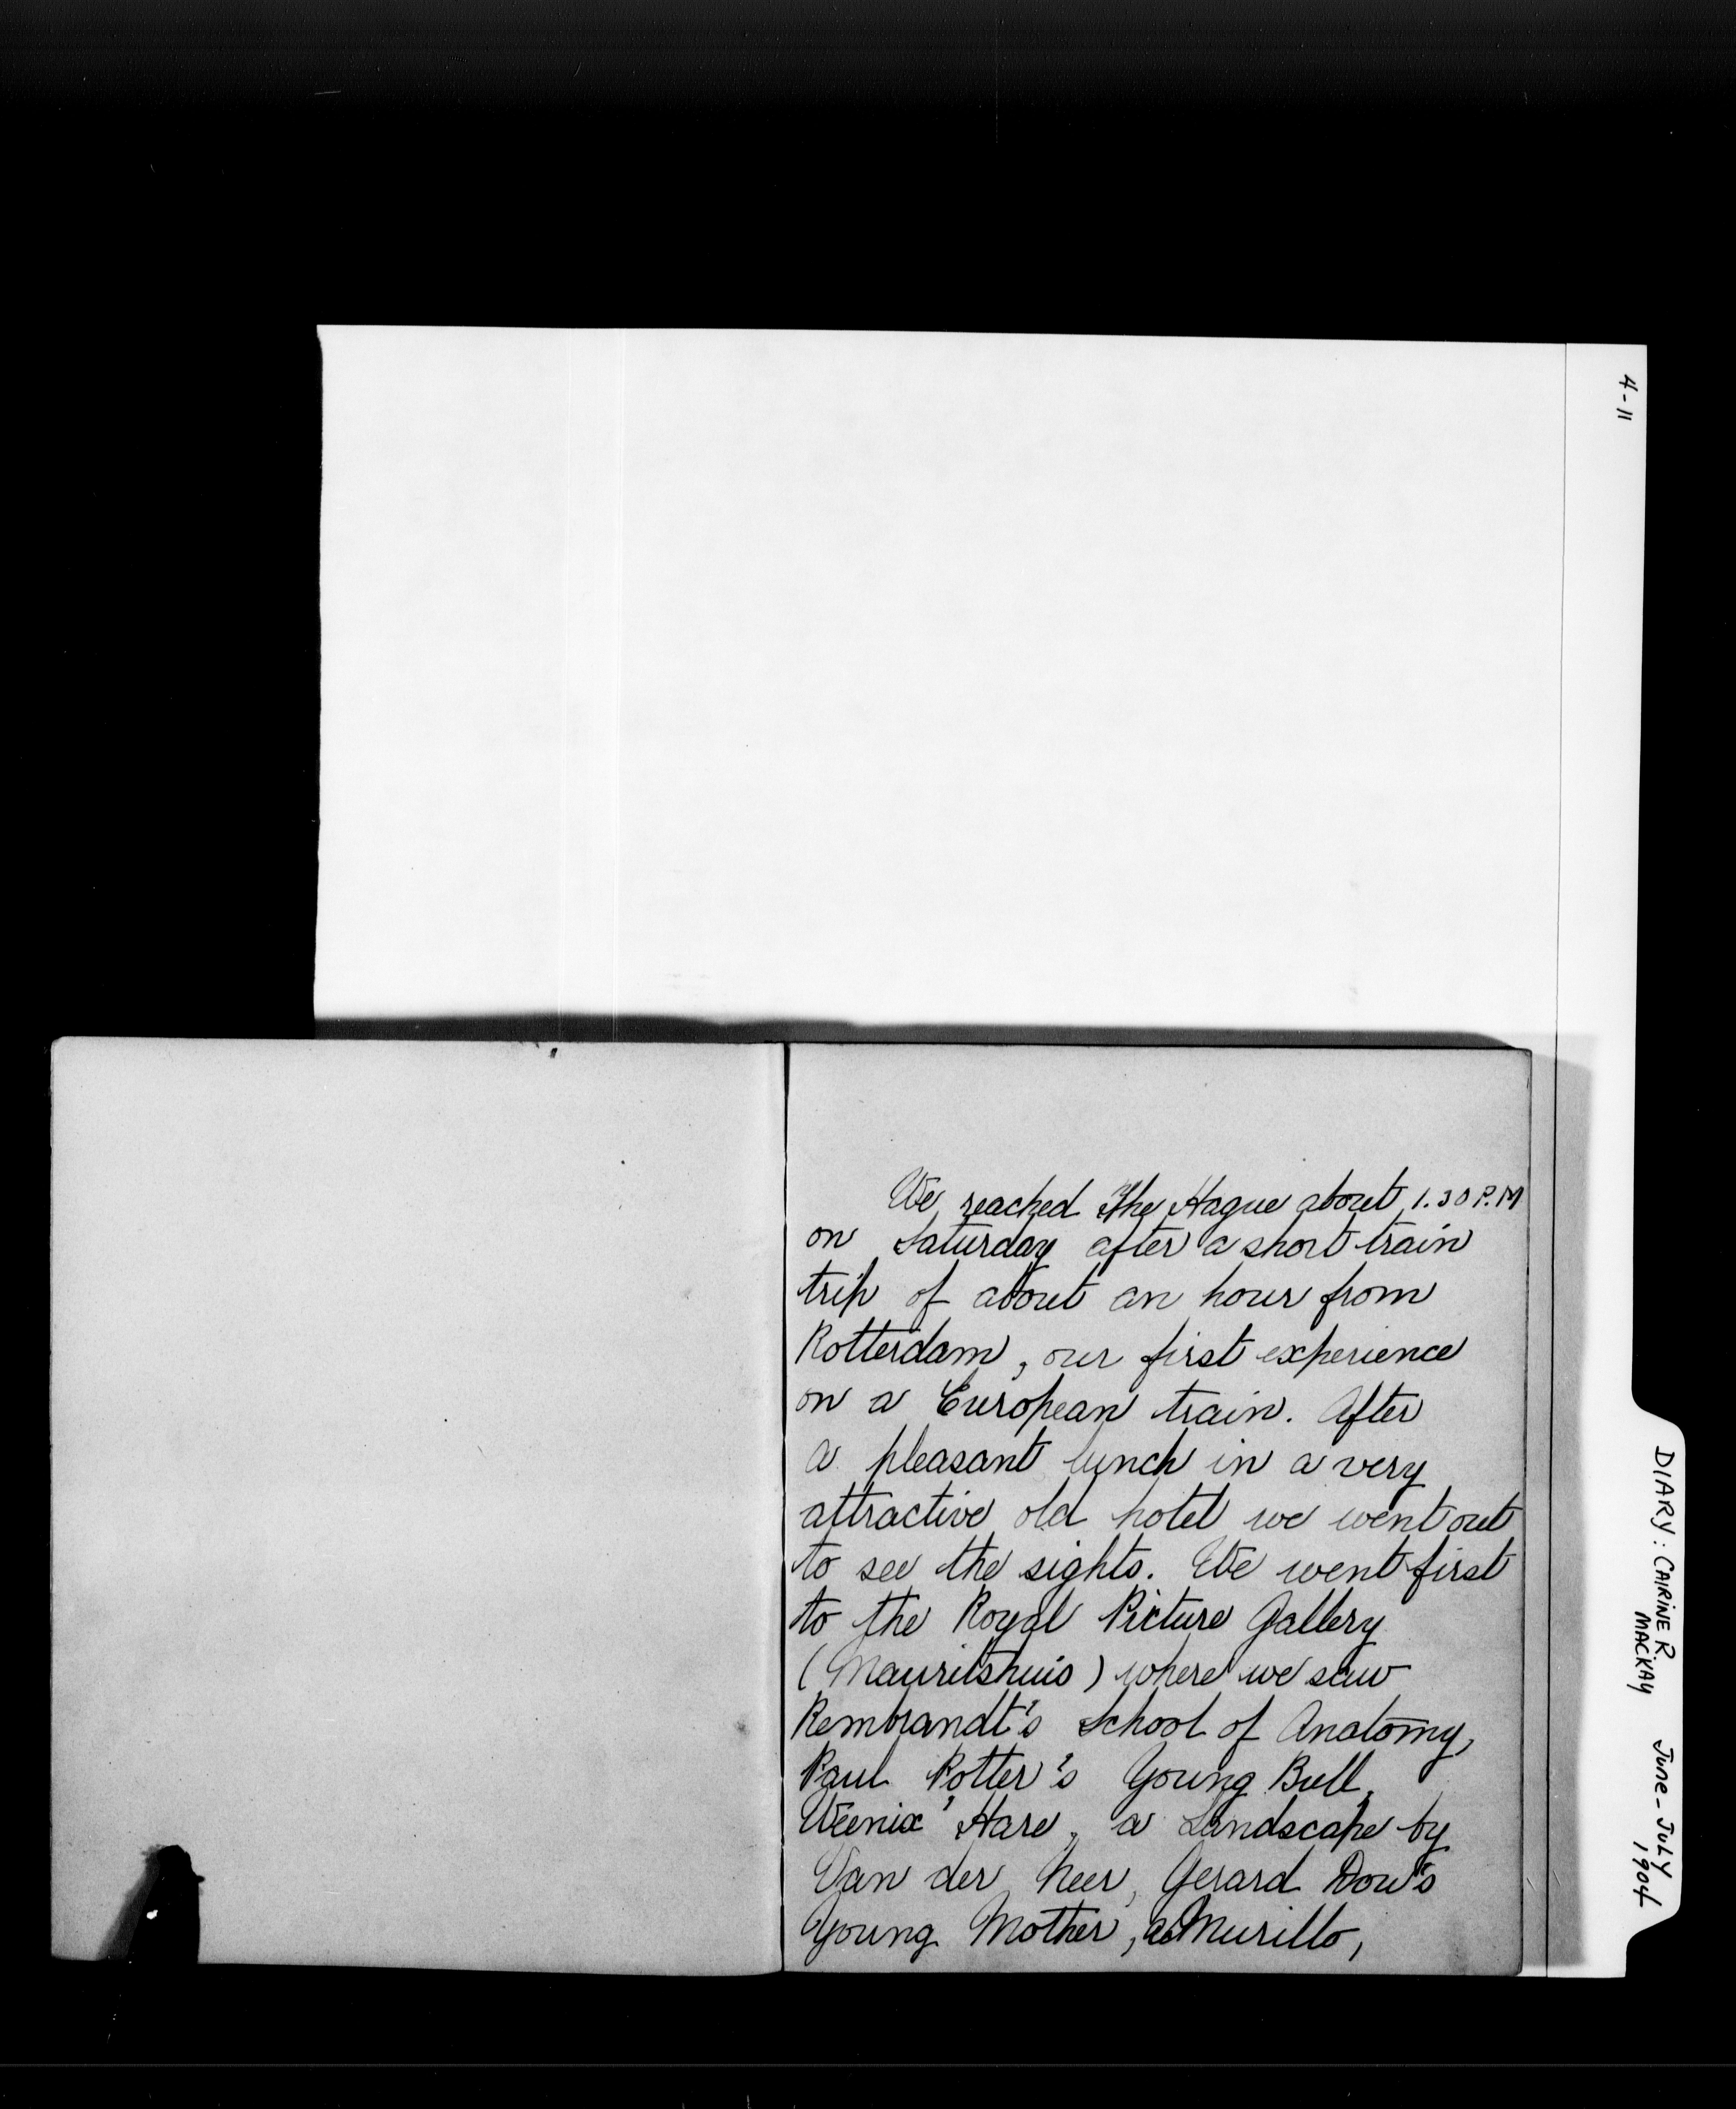 4-11
We reached The Hague about 1.30 P.M
on Saturday after a short train
trip of about an hour from
Rotterdam, our first experience
on a European train. After
a pleasant lunch in a very
attractive old hotel we went out
to see the sights. We went first
to the Royal Picture Gallery
(Mauritshuis) where we saw
Rembrandt's School of Anatomy,
Paul Potter's Young Bull,
Weenix' Hare, a Landscape by
Van der Neer, Gerard Dow's
Young Mother, a Murillo,
DIARY: CAIRINE R. MACKAY
June - July 1904